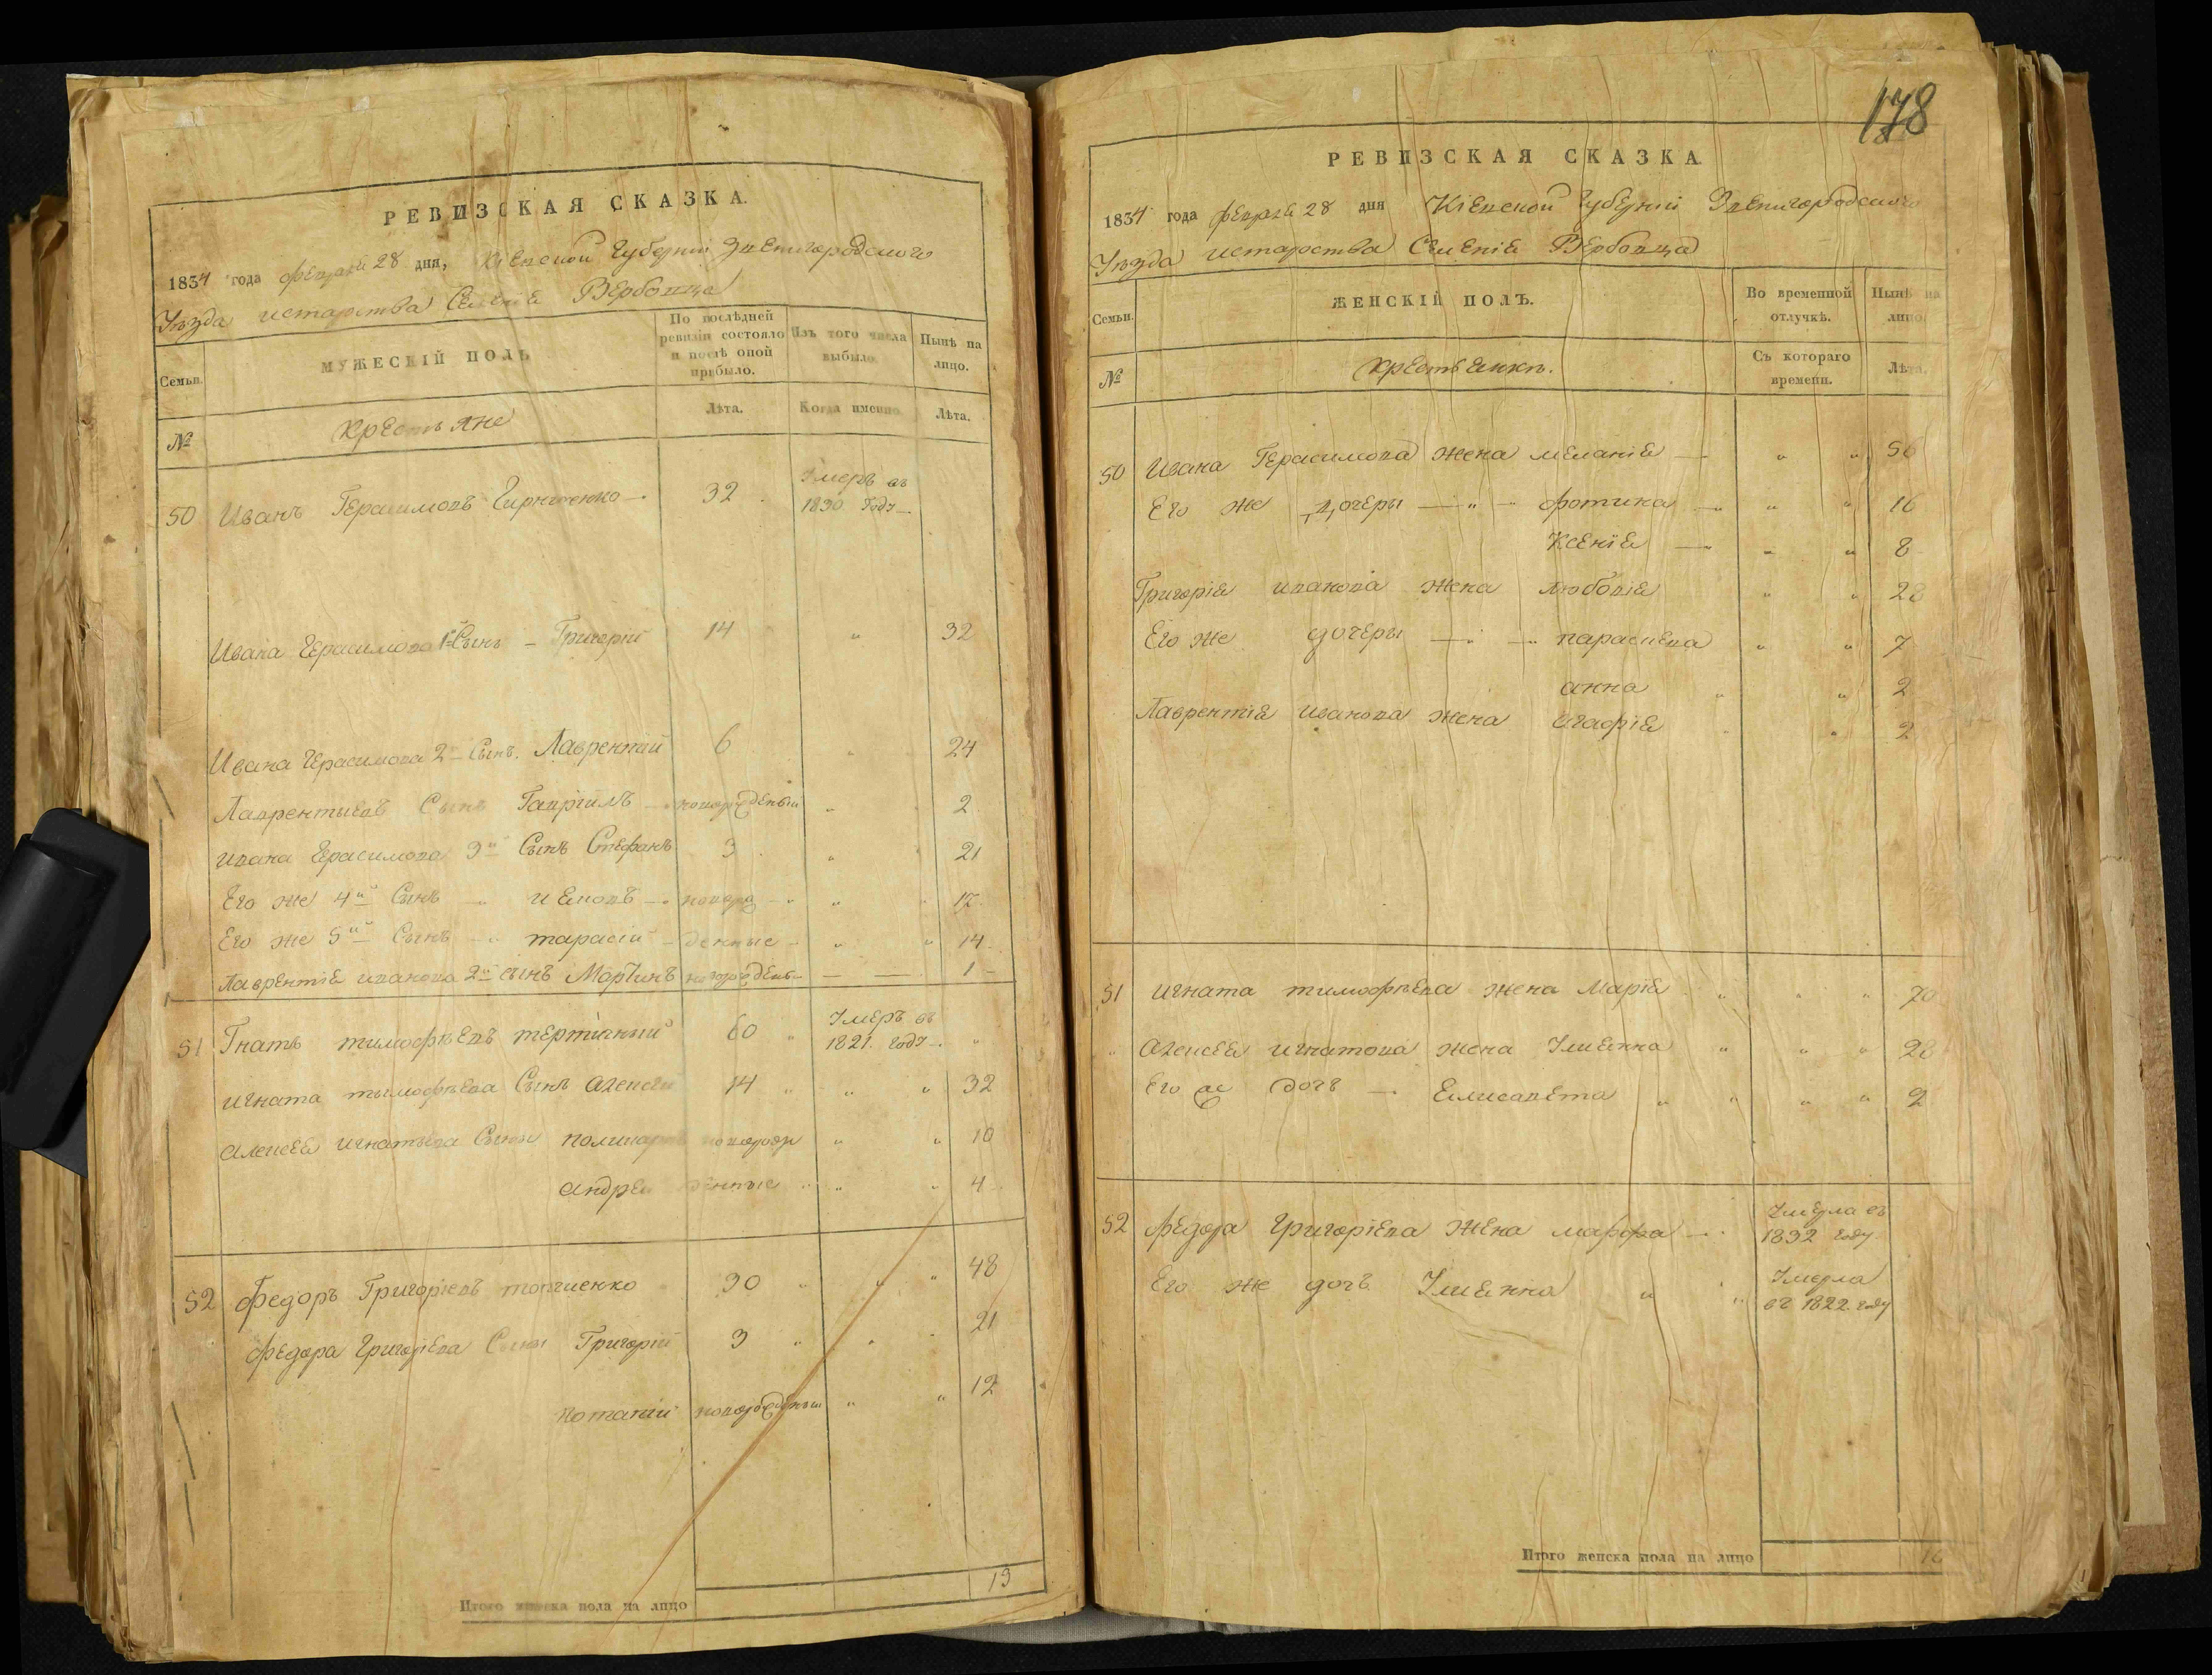 РЕВИЗСКАЯ СКАЗКА.
1834 года февраля 28 дня, Кіевской Губерніи Звенигородского
Уѣзда истароства Селеніе Вербовца
Семьи.
МУЖЕСКІЙ ПОЛЪ
По послѣдней ревизіи состояло и послѣ оной прибыло.
Изъ того числа выбыло.
Нынѣ на лицо.
№
крестьяне
Лѣта.
Когда именно
Лѣта.
50 Иванъ Герасимовъ 32 Умеръ въ 1830 Году
Ивана Герасимова 1й Сынъ Григорій 14 " 32
Ивана Герасимова 2й Сынъ Лаврентій 6 " 24
Лаврентіевъ Сынъ Гавріилъ новорожденый " 2
ивана Герасимова 3й Сынъ Стефанъ 3 " 21
Его же 4й Сынъ новорож " " 17
Его же 5й Сынъ тарасій денные " " 14
Лаврентіе иванова 2й сынъ Мартинъ новорожден 1
51 Гнатъ тимофѣевъ тертичный 60 " Умеръ въ 1821 году "
игната тымофѣева Сынъ алексей 14 " " " 32
алексее игнатьева Сыны поликарпъ новорож " " 10
андрей денные " " 4
52 Федоръ Григоріевъ топчиенко 30 " " " 48
Федора Григоріева Сыны Григорій 3 " " " 21
потапій новорожденый " " 12
Итого женска пола на лицо 13
178
РЕВИЗСКАЯ СКАЗКА.
1834 года февраля 28 дня Кіевской Губерніи Звенигородского
Уѣзда истароства Селеніе Вербовца
Семьи.
ЖЕНСКІЙ ПОЛЪ.
Во временной отлучкѣ.
Нынѣ на лицо.
№
крестьянкъ.
Съ котораго времени.
Лѣта.
50 Ивана Герасимова жена меланіе " " 56
Его же дочеры " фотина " " 16
Ксеніе " " 8
Григоріе иванова жена любовіе " " 28
Его же дочеры " " параскева " " 7
анна " " 2
Лаврентіе иванова жена агафіе " " 2
51 игната тимофѣева жена Маріе " " " 70
" алексее игнатова жена Улиенна " " " 28
Его же дочь Елисавета " " " " 2
52 федора Григоріева жена марфа Умерла въ 1832 году
Его же дочъ Улиенна " " Умерла въ 1822 году
Итого женска пола на лицо 10